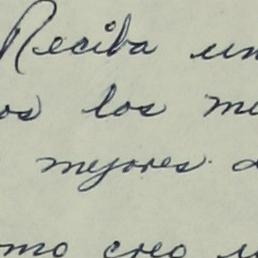 Reciba un
os los m
mejores
omo creo